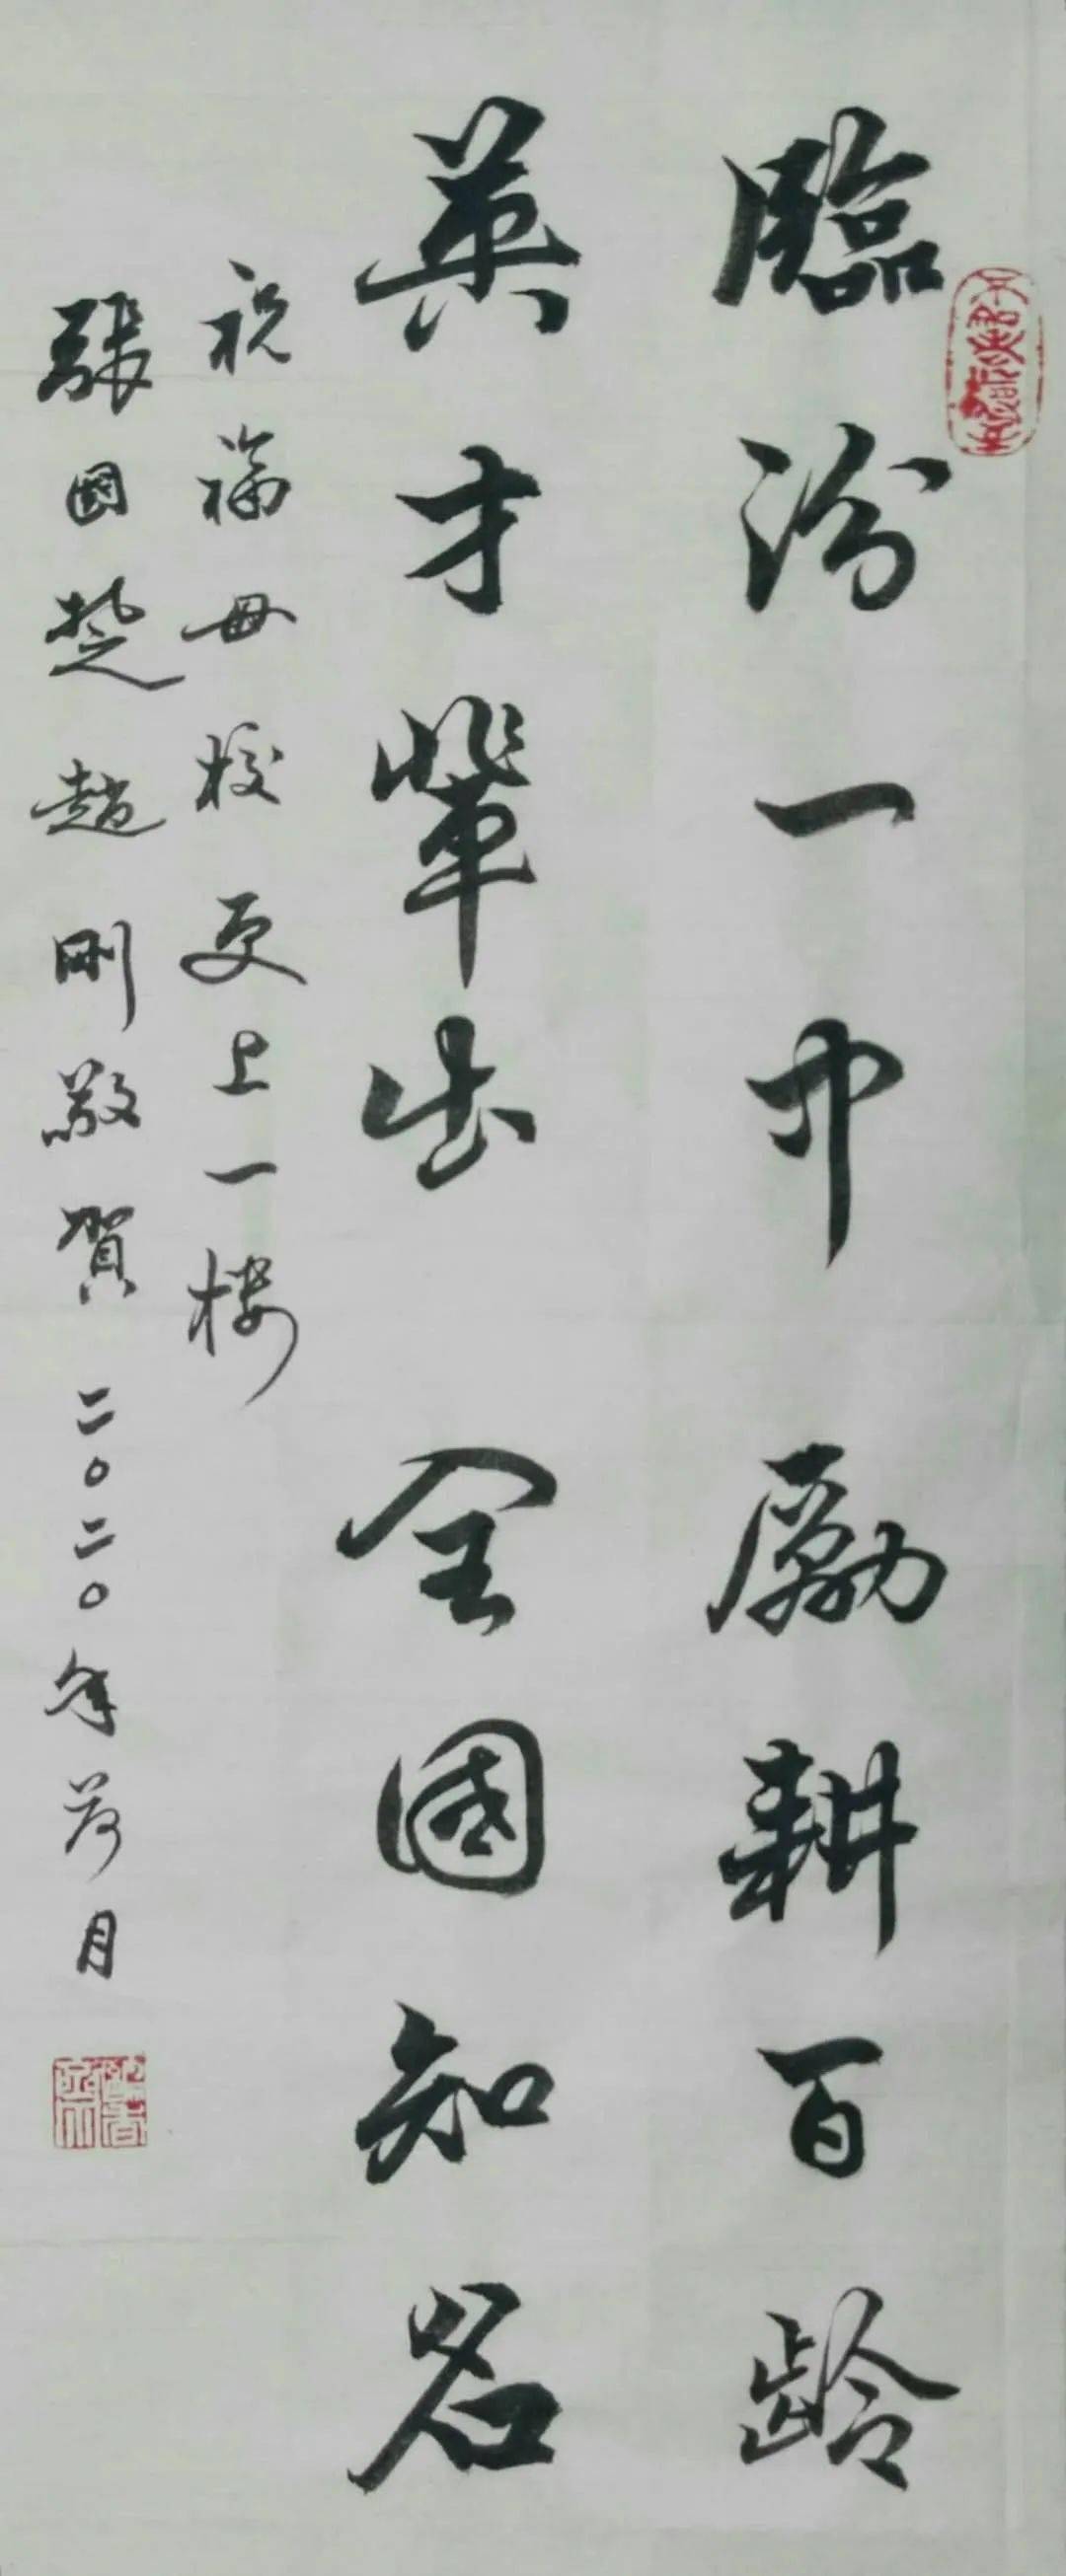 臨汾一中勵耕百齡
英才輩出全國知名
祝福母校更上一楼
張國楚趙剛敬賀二〇二〇年荷月